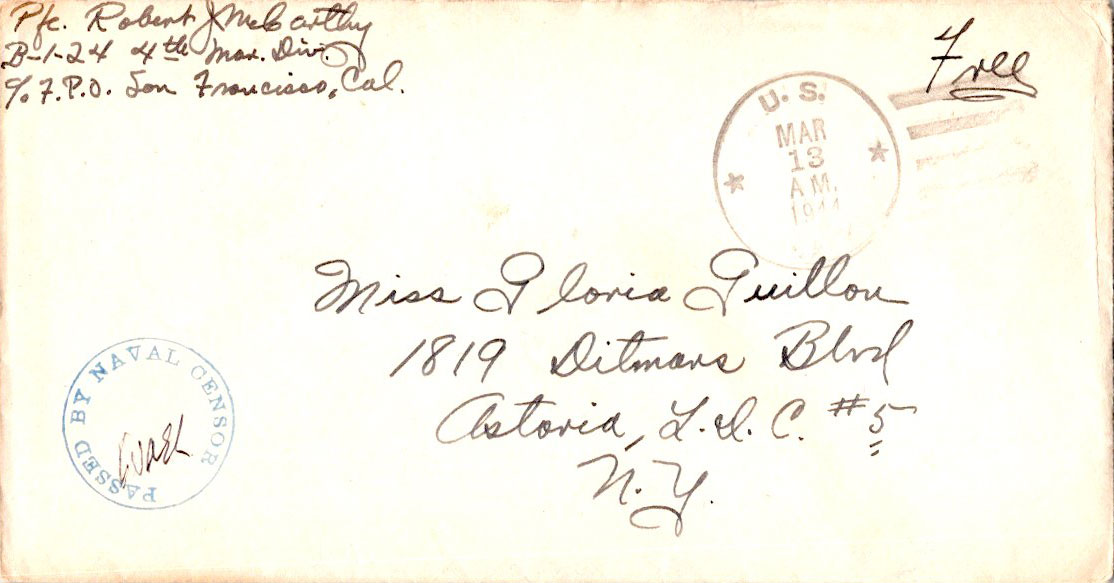 Pfc. Robert J McCarthy
B-1-24 4th Mar. Div.
c/o F.P.O. San Francisco, Cal.
Free
U.S.
MAR
13
A.M.
1944
Miss Gloria Guillou
1819 Ditmars Blvd
Astoria, L.I.C. #5
N.Y.
PASSED BY NAVAL CENSOR